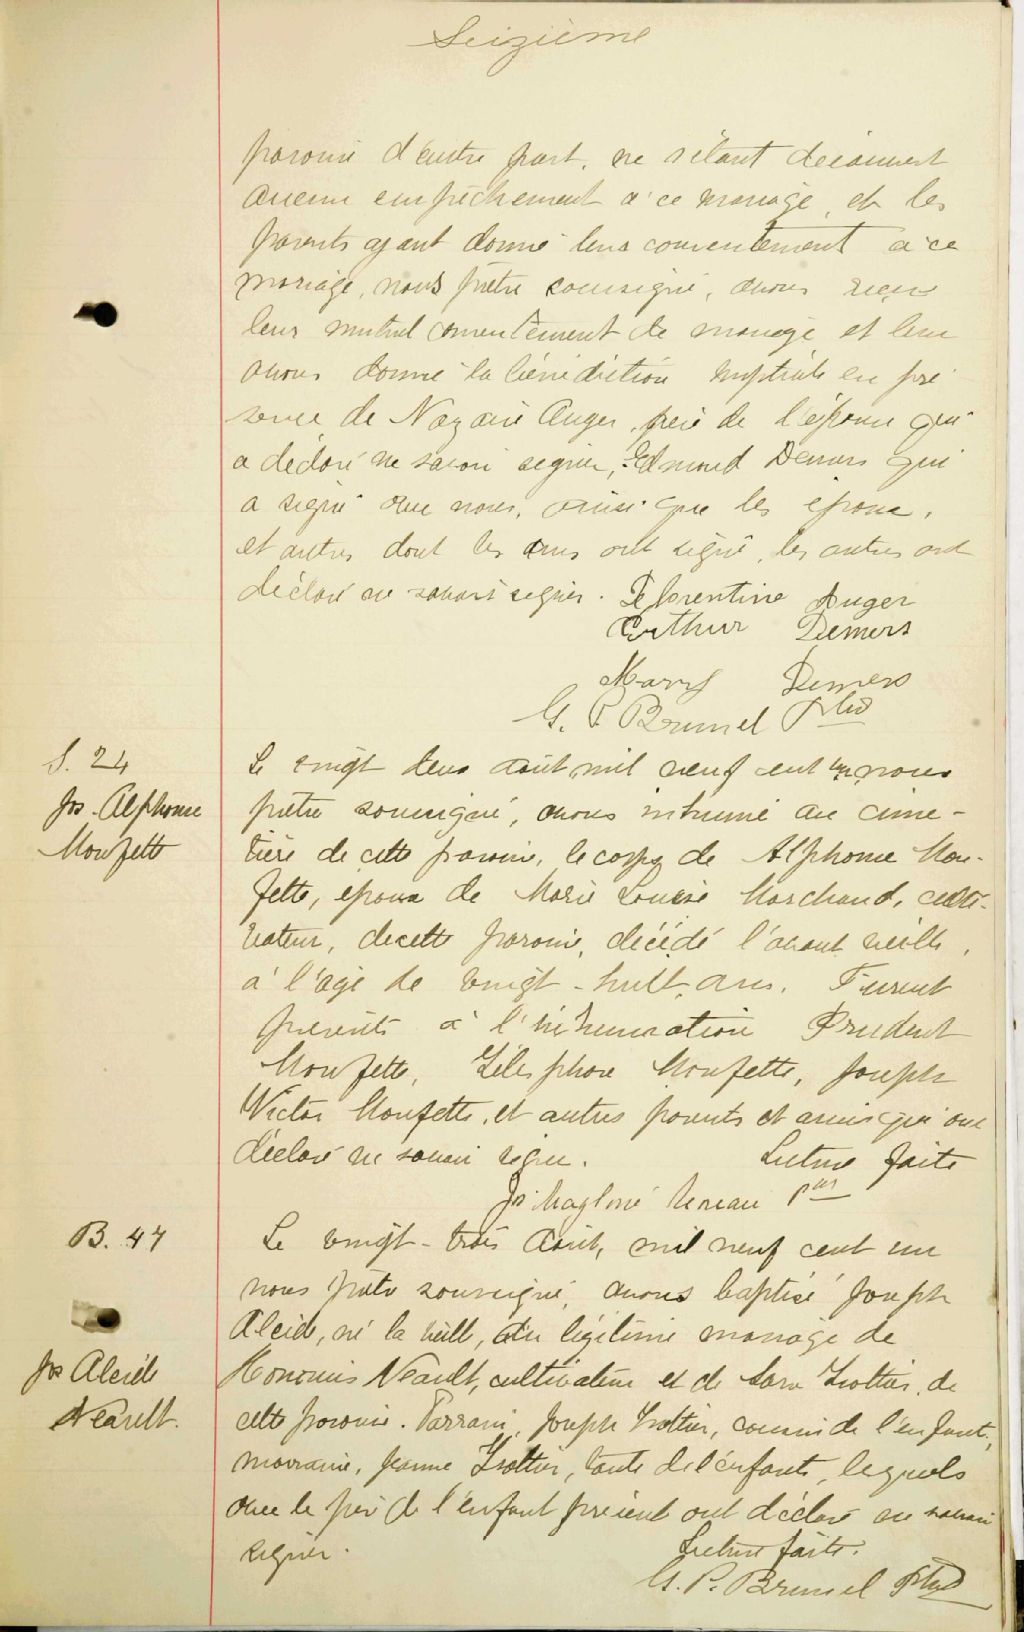 Seizième
paroisse d'autre part, ne s'étant découvert
aucun empêchement à ce mariage, et les
parents ayant donné leur consentement à ce
mariage, nous prêtre soussigné, avons reçu
leur mutuel consentement de mariage et leur
avons donné la bénédiction nuptiale en pré
sence de Nazaire Auger, père de l'épouse qui
a déclaré ne savoir signer, Edmond Demers qui
a signé avec nous, ainsi que les époux,
et autres dont les uns ont signé, les autres ont
déclaré ne savoir signer. Florentine Auger
Arthur Demers
Mary Demers
G. P. Brunel Ptre
S. 24
Jos. Alphonse
Monfette
Le vingt deux août mil neuf cent un nous
prêtre soussigné, avons inhumé au cime-
tière de cette paroisse, le corps de Alphonse Mon-
fette, époux de Marie Louise Marchand, culti-
vateur, de cette paroisse, décédé l'avant veille,
à l'âge de vingt-huit ans. Furent
présents à l'inhumation Prudent
Monfette, Télesphore Monfette, Joseph
Victor Monfette, et autres parents et amis qui ont
déclaré ne savoir signer. Lecture faite
Jos. Magloire
B. 47
Jos Alcide
Neault.
Le vingt-trois Août, mil neuf cent un
nous prêtre soussigné, avons baptisé Joseph
Alcide, né la veille, du légitime mariage de
Honorius Neault, cultivateur et de Sara Trottier, de
cette paroisse. Parrain, Joseph Trottier, cousin de l'enfant,
marraine, Jeanne Trottier, tante de l'enfant, lesquels
avec le père de l'enfant présent ont déclaré ne savoir
signer. Lecture faite.
G. P. Brunel Ptre